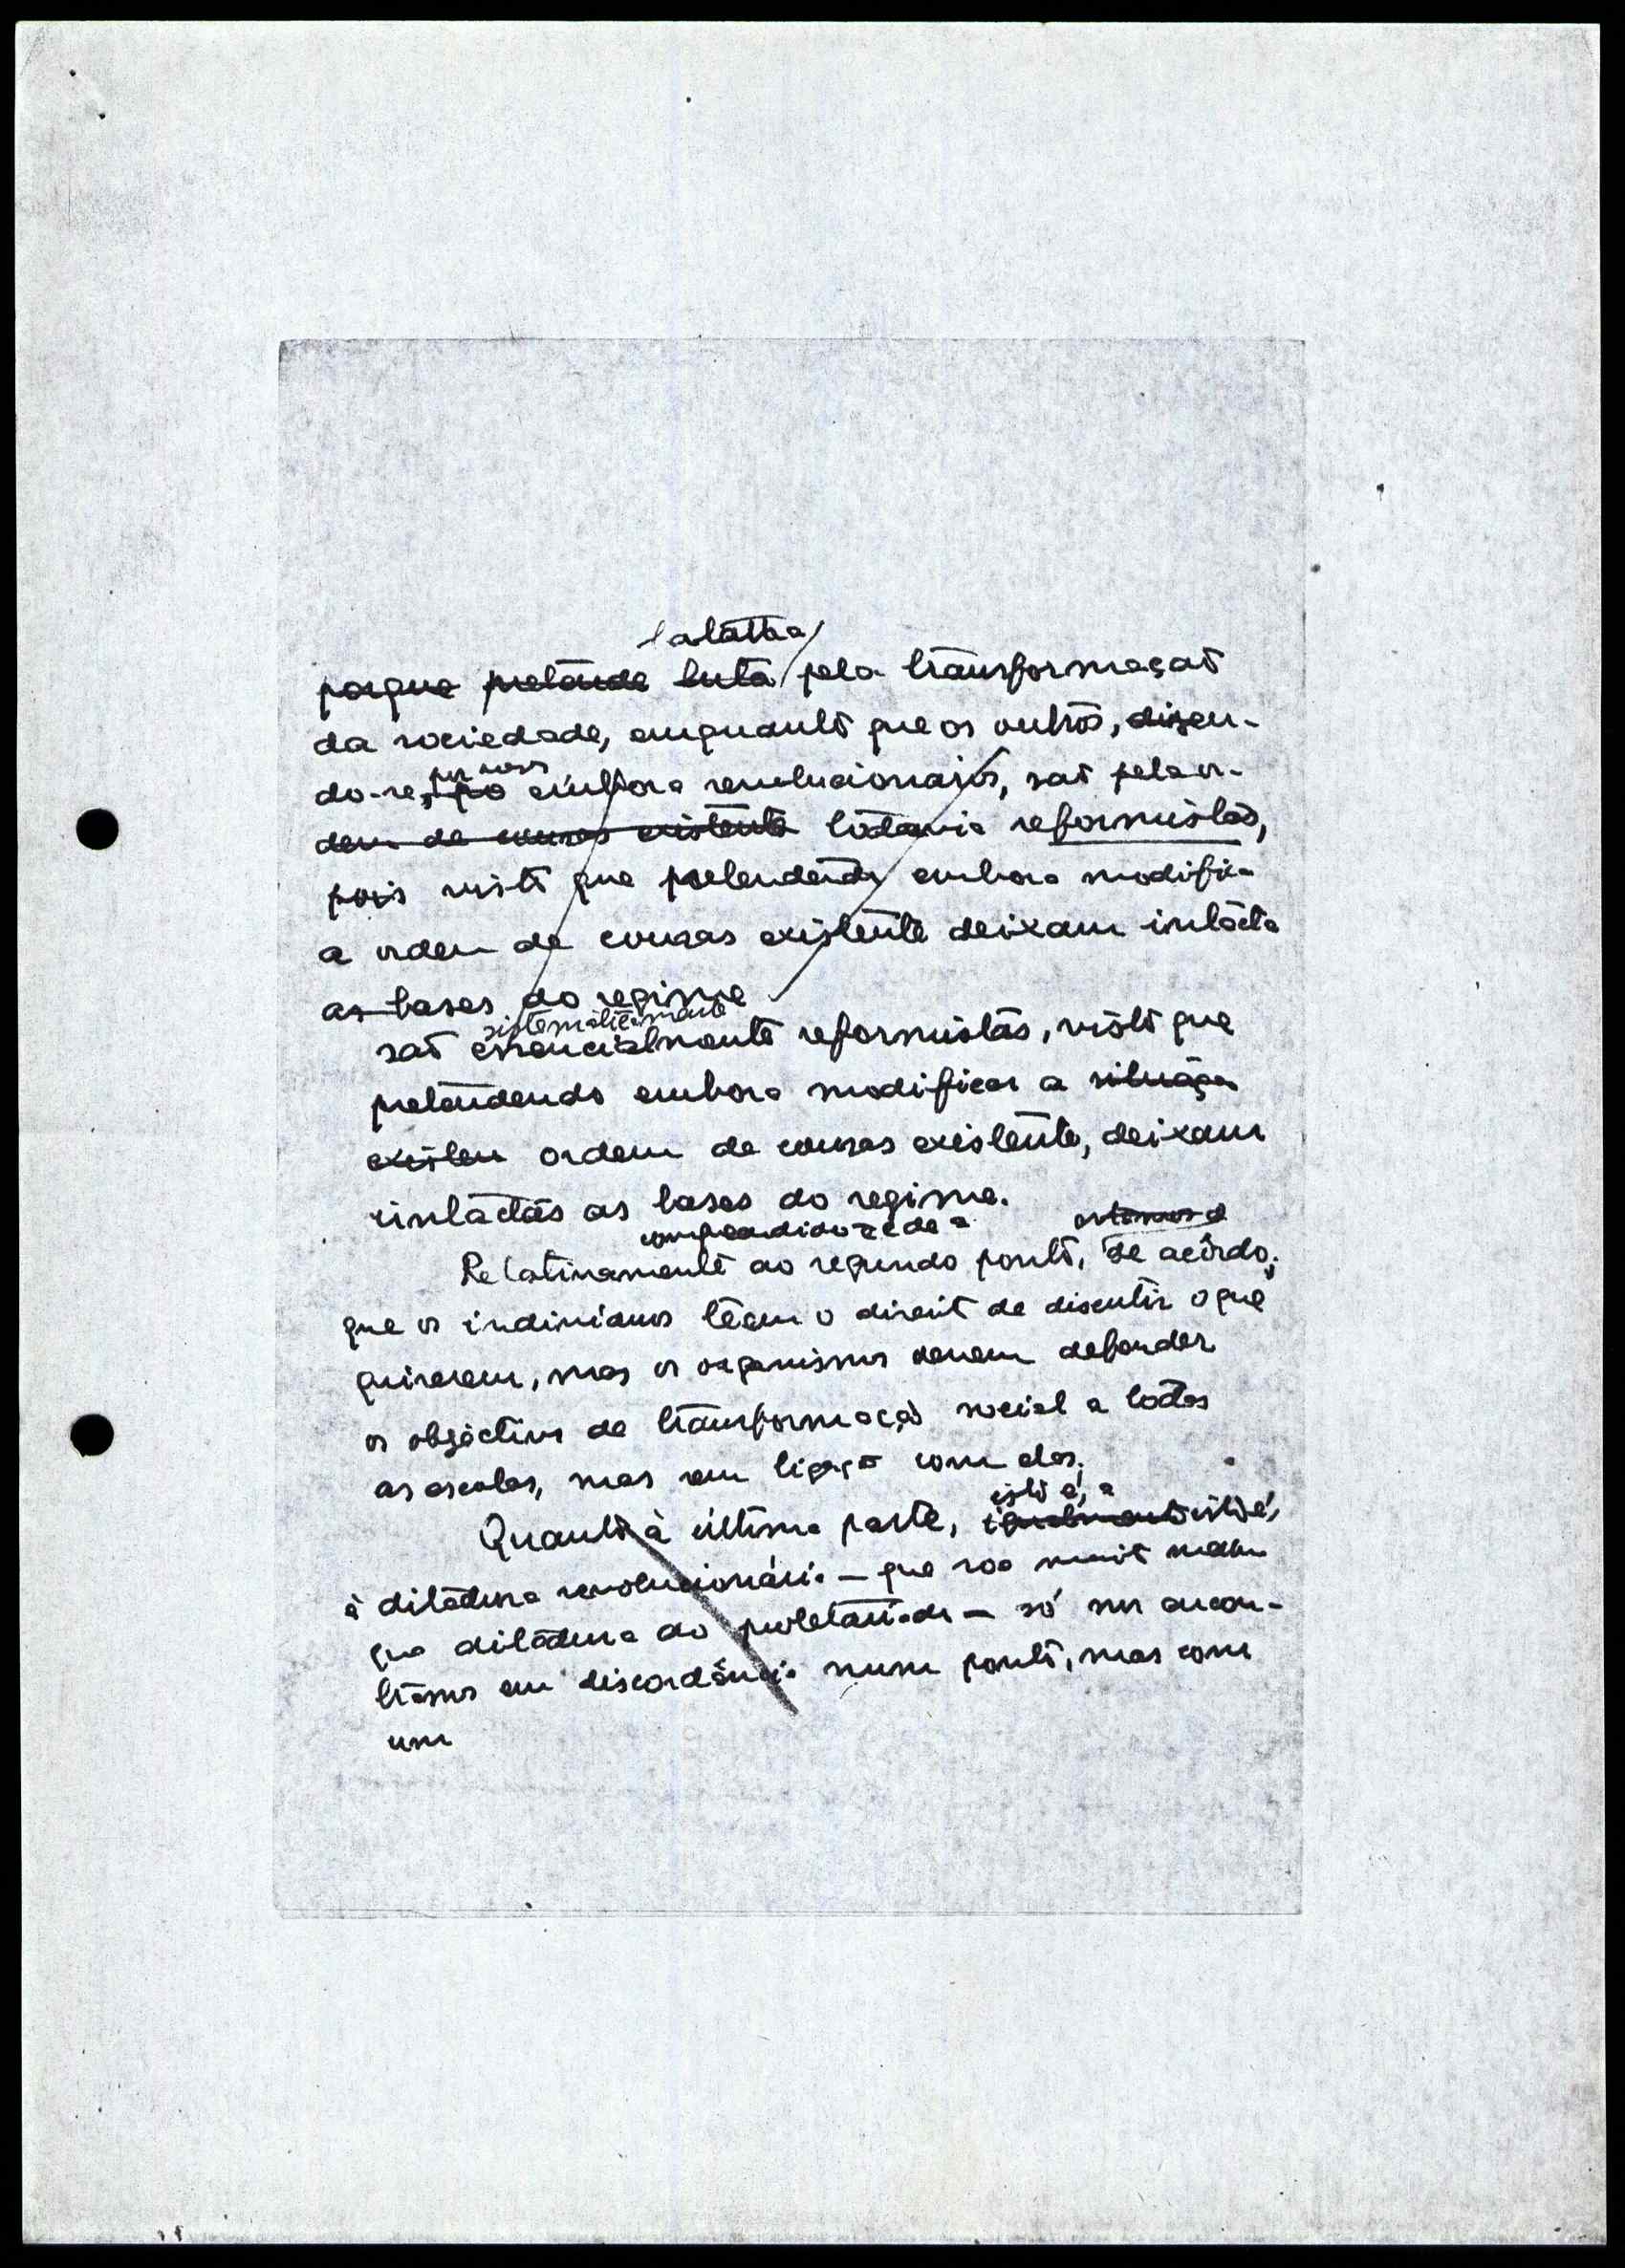 porque pretende luta pela transformação
da sociedade, emquanto que os outros, dizen-
do-se, por vezes embora revolucionários, são pela or-
dem de cousas existente todavia reformistas,
pois visto que pretendendo embora modificar
a ordem de cousas existente deixam intacta
as bases do regime
sistemáticamente
são essencialmente reformistas, visto que
pretendendo embora modificar a situação
existen ordem de cousas existente, deixam
intactas as bases do regime.
estamos d
Relativamente ao segundo ponto, de acôrdo;
que os individuos têem o direito de discutir o que
quizerem, mas os organismos devem defender
os objectivos de transformação social a todas
as escolas, mas sem ligação com elas.
isto é, a
Quanto à última parte, igualmente isto é,
à ditadura revolucionária — que soa muito melhor
que ditadura do proletariado — só nos encon-
tramos em discordância num ponto, mas com
um